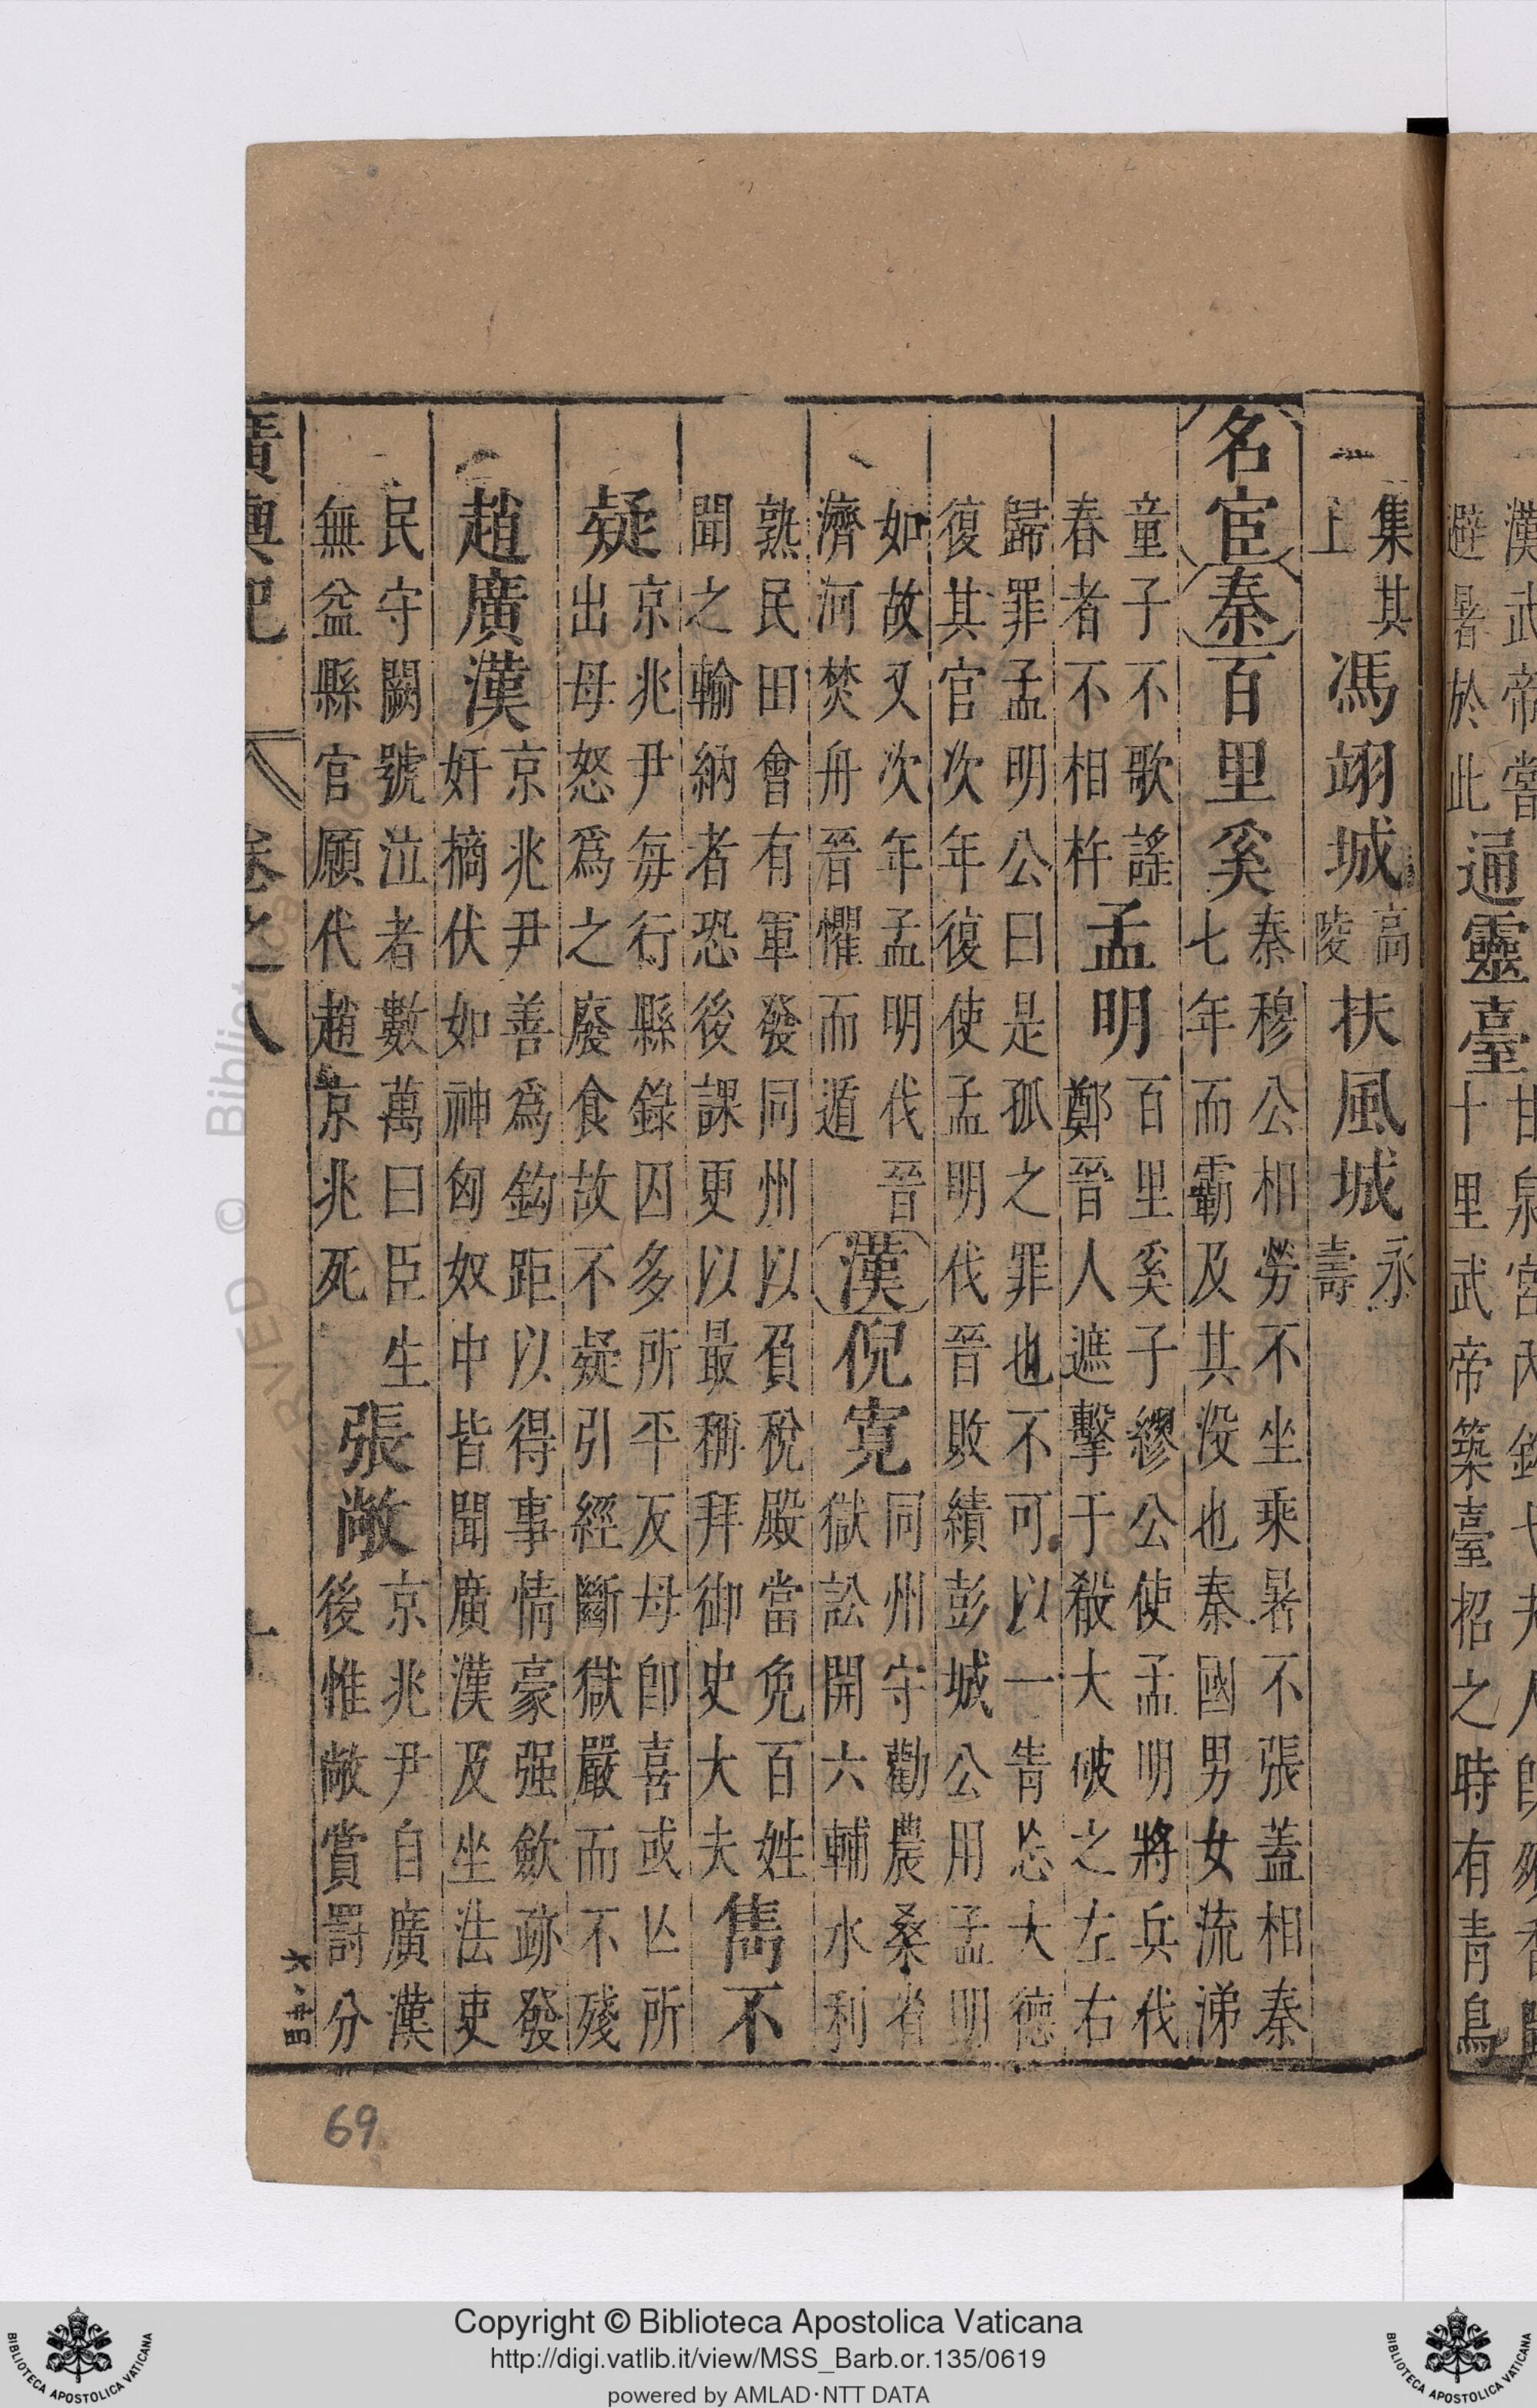 漢武帝嘗
避暑於此
通靈臺
甘泉宮內
十里武帝築臺招之時有青鳥
集其
上
馮翊城
高
陵
扶風城
永
壽
名宦
秦
百里奚
秦穆公相勞不坐乘暑不張蓋相秦
七年而霸及其没也秦國男女流涕
童子不歌謠
春者不相杵
孟明
百里奚子繆公使孟明將兵伐
鄭晉人遮擊于殽大破之左右
歸罪孟明公曰是孤之罪也不可以一眚忘大德
復其官次年復使孟明伐晉敗績彭城公用孟明
如故又次年孟明伐晉
濟河焚舟晉懼而遁
漢
倪寬
同州守勸農桑省
獄訟開六輔水利
熟民田會有軍發同州以負稅殿當免百姓
聞之輸納者恐後課更以最稱拜御史大夫
雋不
疑
京兆尹每行縣錄囚多所平反母卽喜或亾所
出母怒爲之廢食故不疑引經斷獄嚴而不殘
趙廣漢
京兆尹善爲鈎距以得事情豪强歛跡發
奸摘伏如神匈奴中皆聞廣漢及坐法吏
民守闕號泣者數萬曰臣生
無益縣官願代趙京兆死
張敞
京兆尹自廣漢
後惟敞賞罰分
廣輿記
卷之八
69
Copyright © Biblioteca Apostolica Vaticana
http://digi.vatlib.it/view/MSS_Barb.or.135/0619
powered by AMLAD·NTT DATA
BIBLIOTECA APOSTOLICA VATICANA
BIBLIOTECA APOSTOLICA VATICANA